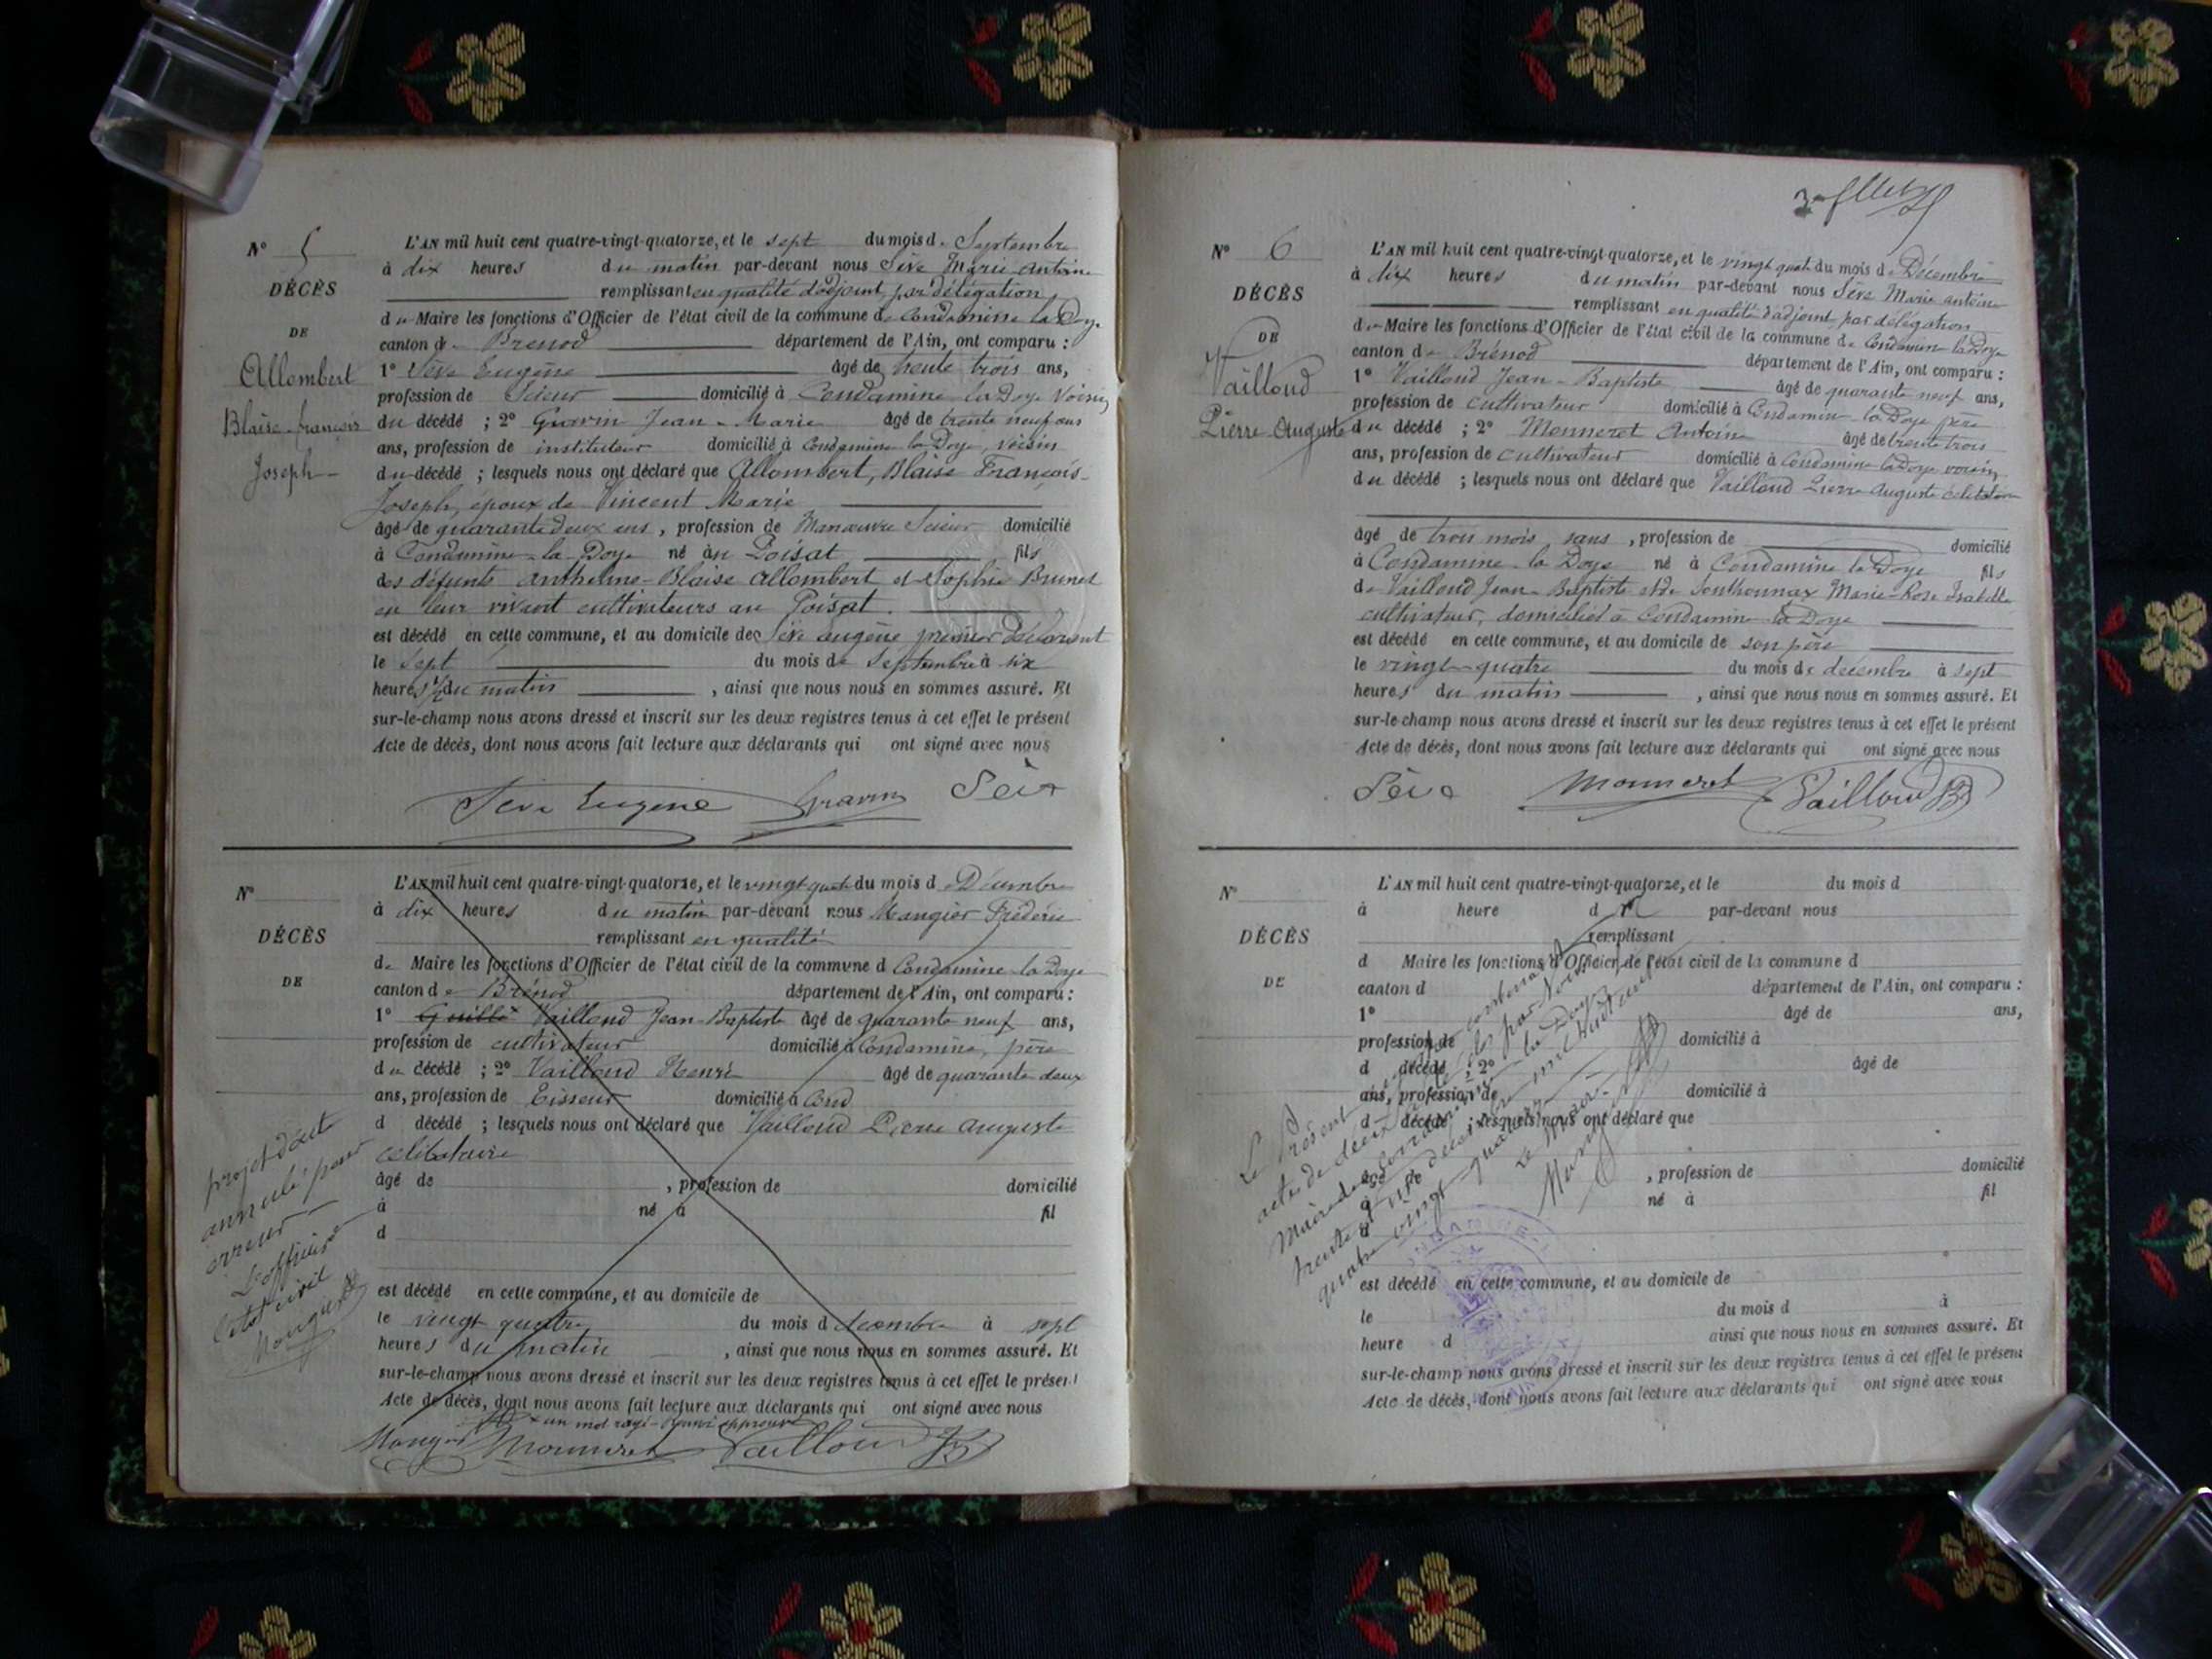 N° 5
DÉCÈS
DE
Allombert
Blaise-françois
Joseph
L'AN mil huit cent quatre-vingt-quatorze, et le sept du mois de Septembre
à dix heures du matin par-devant nous Sève Marie Antoine
remplissant en qualité d'adjoint, par délégation
du Maire les fonctions d'Officier de l'état civil de la commune de Condamine la Doye
canton de Brénod département de l'Ain, ont comparu :
1° Sève Eugène âgé de trente trois ans,
profession de Scieur domicilié à Condamine la Doye Voisin
du décédé ; 2° Gravin Jean-Marie âgé de trente neuf ans
ans, profession de instituteur domicilié à Condamine la Doye, voisin
du décédé ; lesquels nous ont déclaré que Allombert, Blaise François-
Joseph, époux de Vincent Marie
âgé de quarante deux ans, profession de Manœuvre Scieur domicilié
à Condamine-la-Doye né au Poisat fils
des défunts Anthelme-Blaise Allombert et Sophie Brunet
en leur vivant cultivateurs au Poisat.
est décédé en cette commune, et au domicile de Sève Eugène premier déclarant
le sept du mois de Septembre à six
heures 1/2 du matin , ainsi que nous nous en sommes assuré. Et
sur-le-champ nous avons dressé et inscrit sur les deux registres tenus à cet effet le présent
Acte de décès, dont nous avons fait lecture aux déclarants qui ont signé avec nous
Sève Eugène Gravin Sève
N°
DÉCÈS
DE
L'AN mil huit cent quatre-vingt-quatorze, et le vingt quatre du mois d Décembre
à dix heures du matin par-devant nous Mangier Frédéric
remplissant en qualité
de Maire les fonctions d'Officier de l'état civil de la commune d Condamine-la-Doye
canton de Brénod département de l'Ain, ont comparu :
1° Vailloud Jean-Baptiste âgé de quarante neuf ans,
profession de cultivateur domicilié à Condamine, père
du décédé ; 2° Vailloud Henri âgé de quarante deux
ans, profession de Tisseur domicilié à Cond
d décédé ; lesquels nous ont déclaré que Vailloud Pierre Auguste
célibataire
âgé de , profession de domicilié
à né à fil
d
est décédé en cette commune, et au domicile de
le vingt quatre du mois d décembre à sept
heures du matin , ainsi que nous nous en sommes assuré. Et
sur-le-champ nous avons dressé et inscrit sur les deux registres tenus à cet effet le présent
Acte de décès, dont nous avons fait lecture aux déclarants qui ont signé avec nous
un mot rayé
Mangier Monneret Vailloud JB
projet d'acte
annulé pour
erreur
L'officier
de l'état civil
Mangier
N° 6
DÉCÈS
DE
Vailloud
Pierre-Auguste
L'AN mil huit cent quatre-vingt-quatorze, et le vingt quatre du mois de Décembre
à dix heures du matin par-devant nous Sève Marie Antoine
remplissant en qualité d'adjoint par délégation
du Maire les fonctions d'Officier de l'état civil de la commune de Condamine la Doye
canton de Brénod département de l'Ain, ont comparu :
1° Vailloud Jean-Baptiste âgé de quarante neuf ans,
profession de cultivateur domicilié à Condamine la Doye père
du décédé ; 2° Monneret Antoine âgé de trente trois
ans, profession de cultivateur domicilié à Condamine la Doye voisin
du décédé ; lesquels nous ont déclaré que Vailloud Pierre Auguste célibataire
âgé de trois mois, sans , profession de domicilié
à Condamine-la Doye né à Condamine la Doye fils
de Vailloud Jean-Baptiste et de Southonnax Marie-Rose Isabelle
cultivateur, domiciliés à Condamine la Doye
est décédé en cette commune, et au domicile de son père
le vingt-quatre du mois de decembre à sept
heures du matin , ainsi que nous nous en sommes assuré. Et
sur-le-champ nous avons dressé et inscrit sur les deux registres tenus à cet effet le présent
Acte de décès, dont nous avons fait lecture aux déclarants qui ont signé avec nous
Sève Monneret Vailloud JB
N°
DÉCÈS
DE
L'AN mil huit cent quatre-vingt-quatorze, et le du mois d
à heure d par-devant nous
remplissant
d Maire les fonctions d'Officier de l'état civil de la commune d
canton d département de l'Ain, ont comparu :
1° âgé de ans,
profession de domicilié à
d décédé ; 2° âgé de
ans, profession de domicilié à
d décédé ; lesquels nous ont déclaré que
âgé de , profession de domicilié
à né à fil
d
est décédé en cette commune, et au domicile de
le du mois d à
heure d ainsi que nous nous en sommes assuré. Et
sur-le-champ nous avons dressé et inscrit sur les deux registres tenus à cet effet le présent
Acte de décès, dont nous avons fait lecture aux déclarants qui ont signé avec nous
Le Présent
actes de décès par Nous
Maire de Condamine la Doye
trente et un décembre mil huit cent
quatre vingt quatorze
Le Maire
Mangier